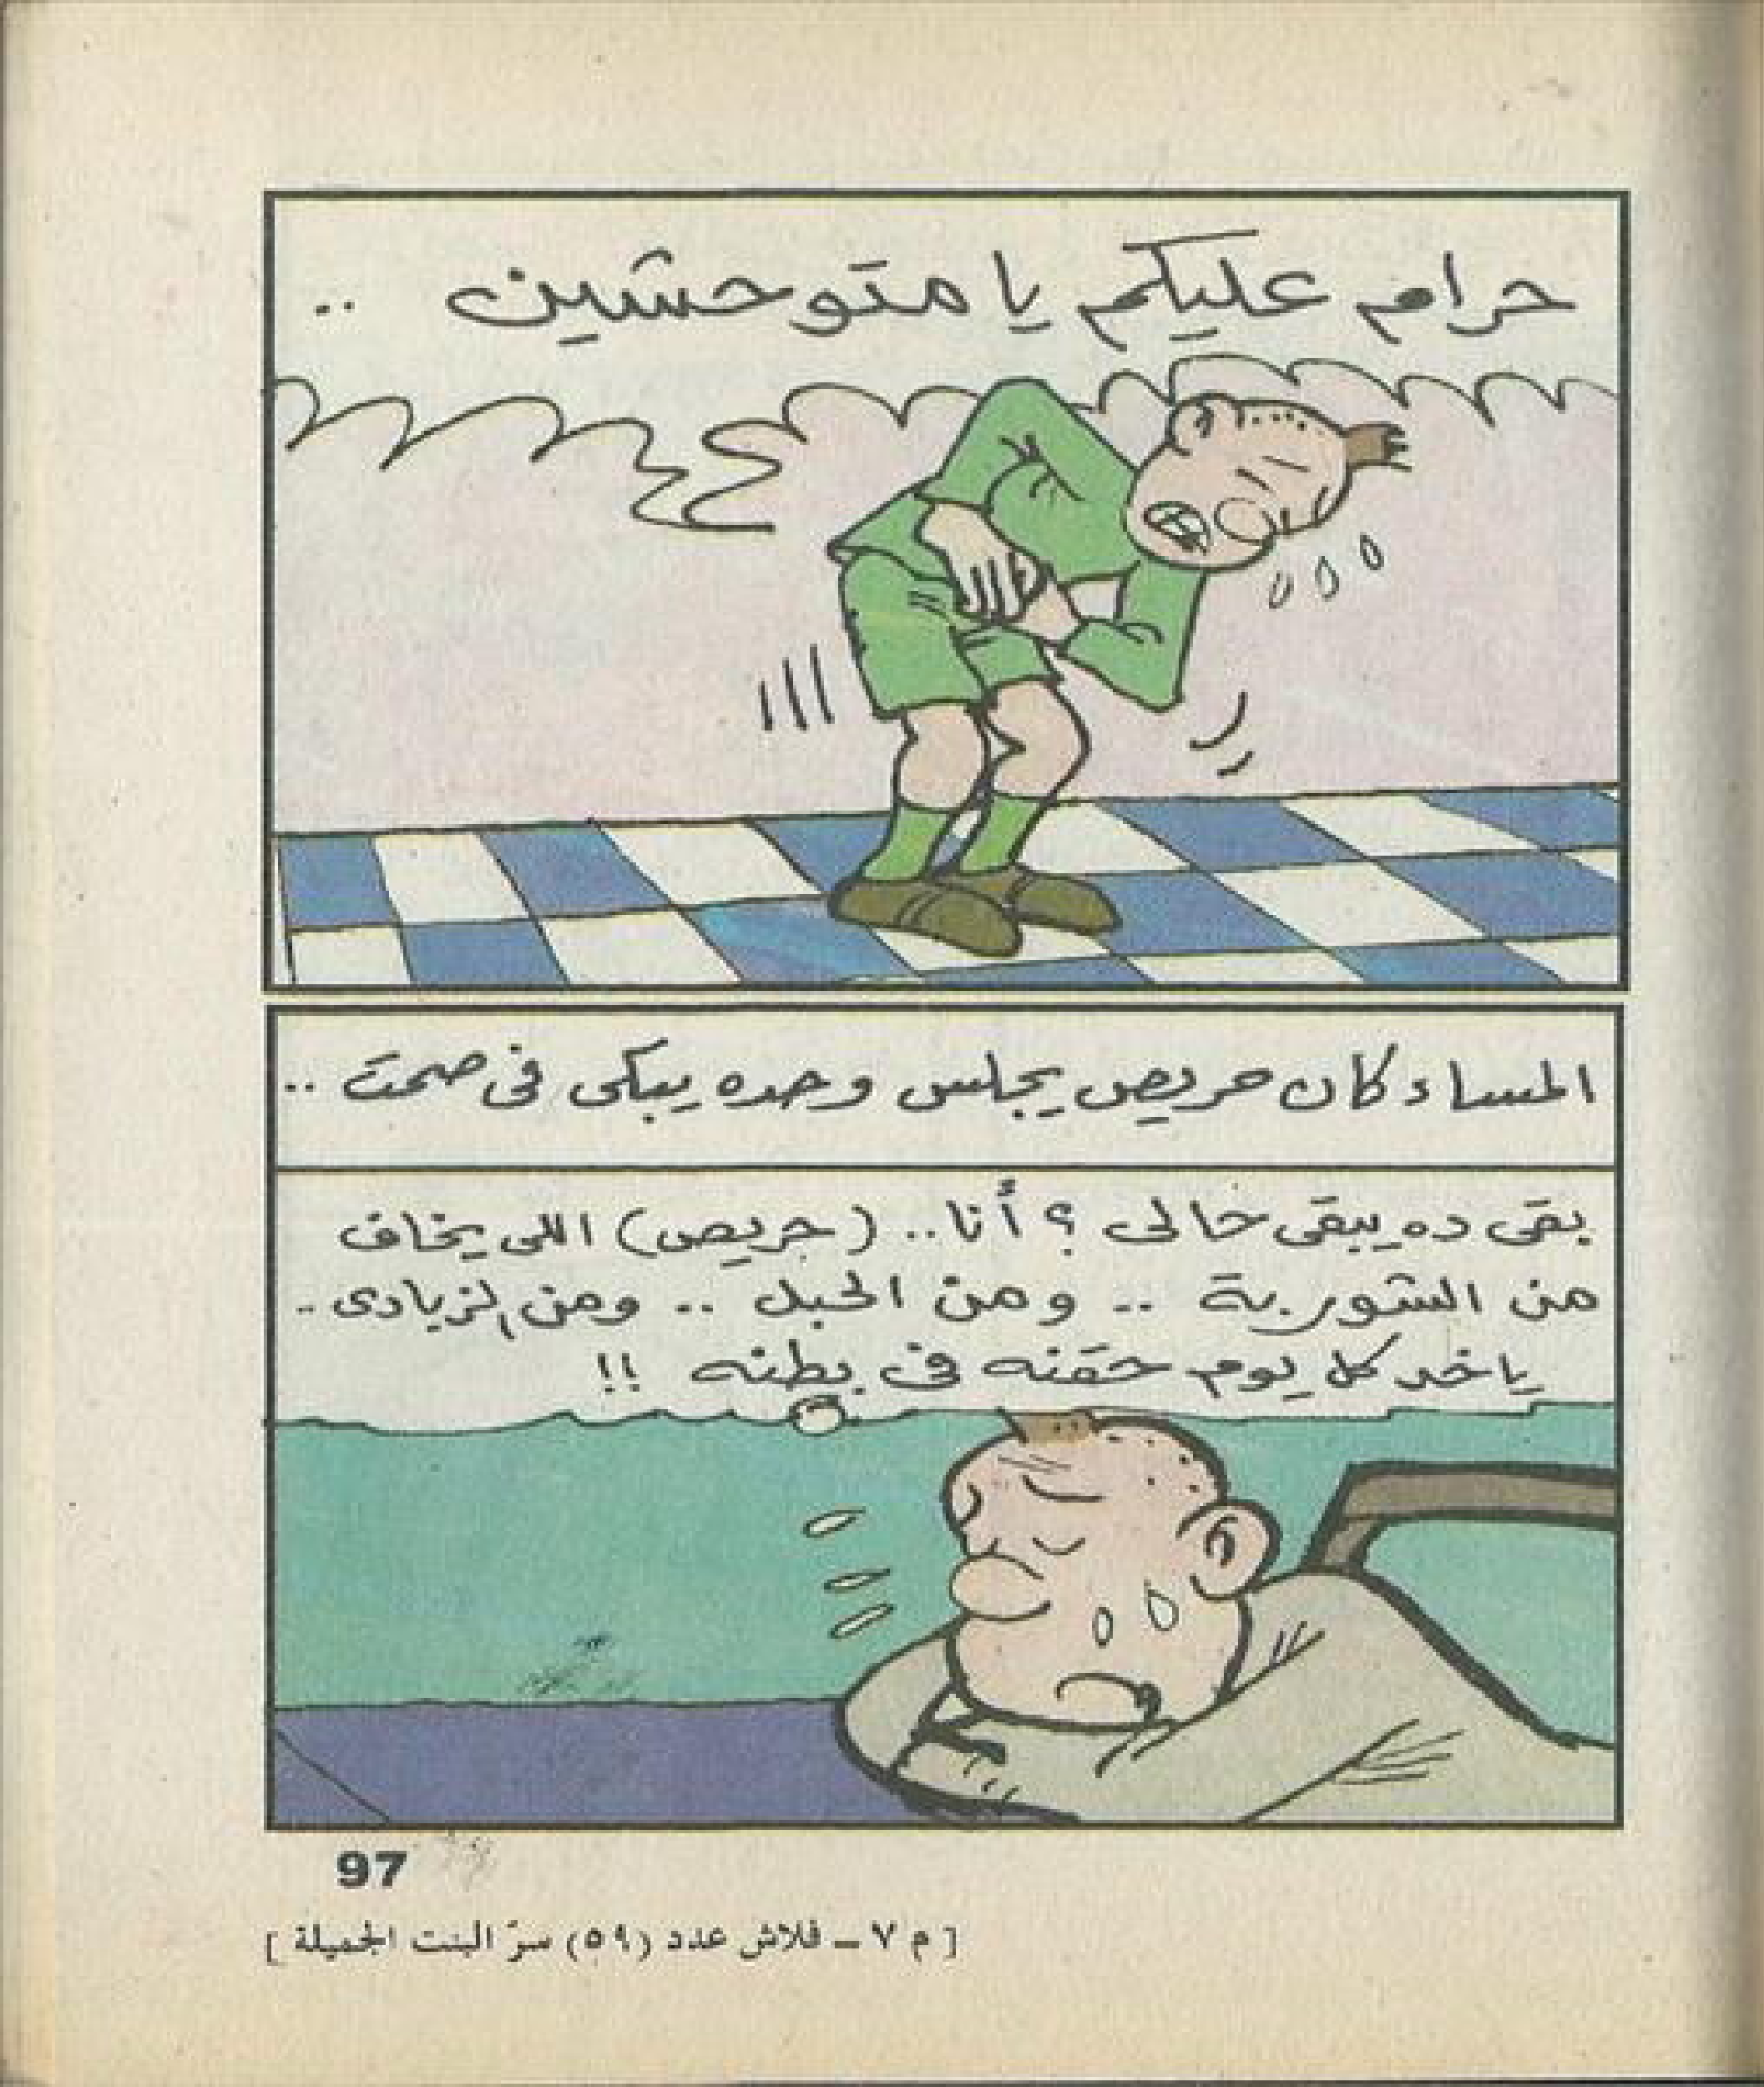 حرام عليكم يا متوحشين ..
المساء كان حريص يجلس وحده يبكى فى صمت ..
بقى ده يبقى حالى ؟ أنا .. (حريص) اللى يخاف
من الشوربة .. ومن الحبل .. ومن الزبادى ..
ياخد كل يوم حقنه فى بطنه !!
97
[ م ٧ ــ فلاش عدد (٥٩) سرّ البنت الجميلة ]